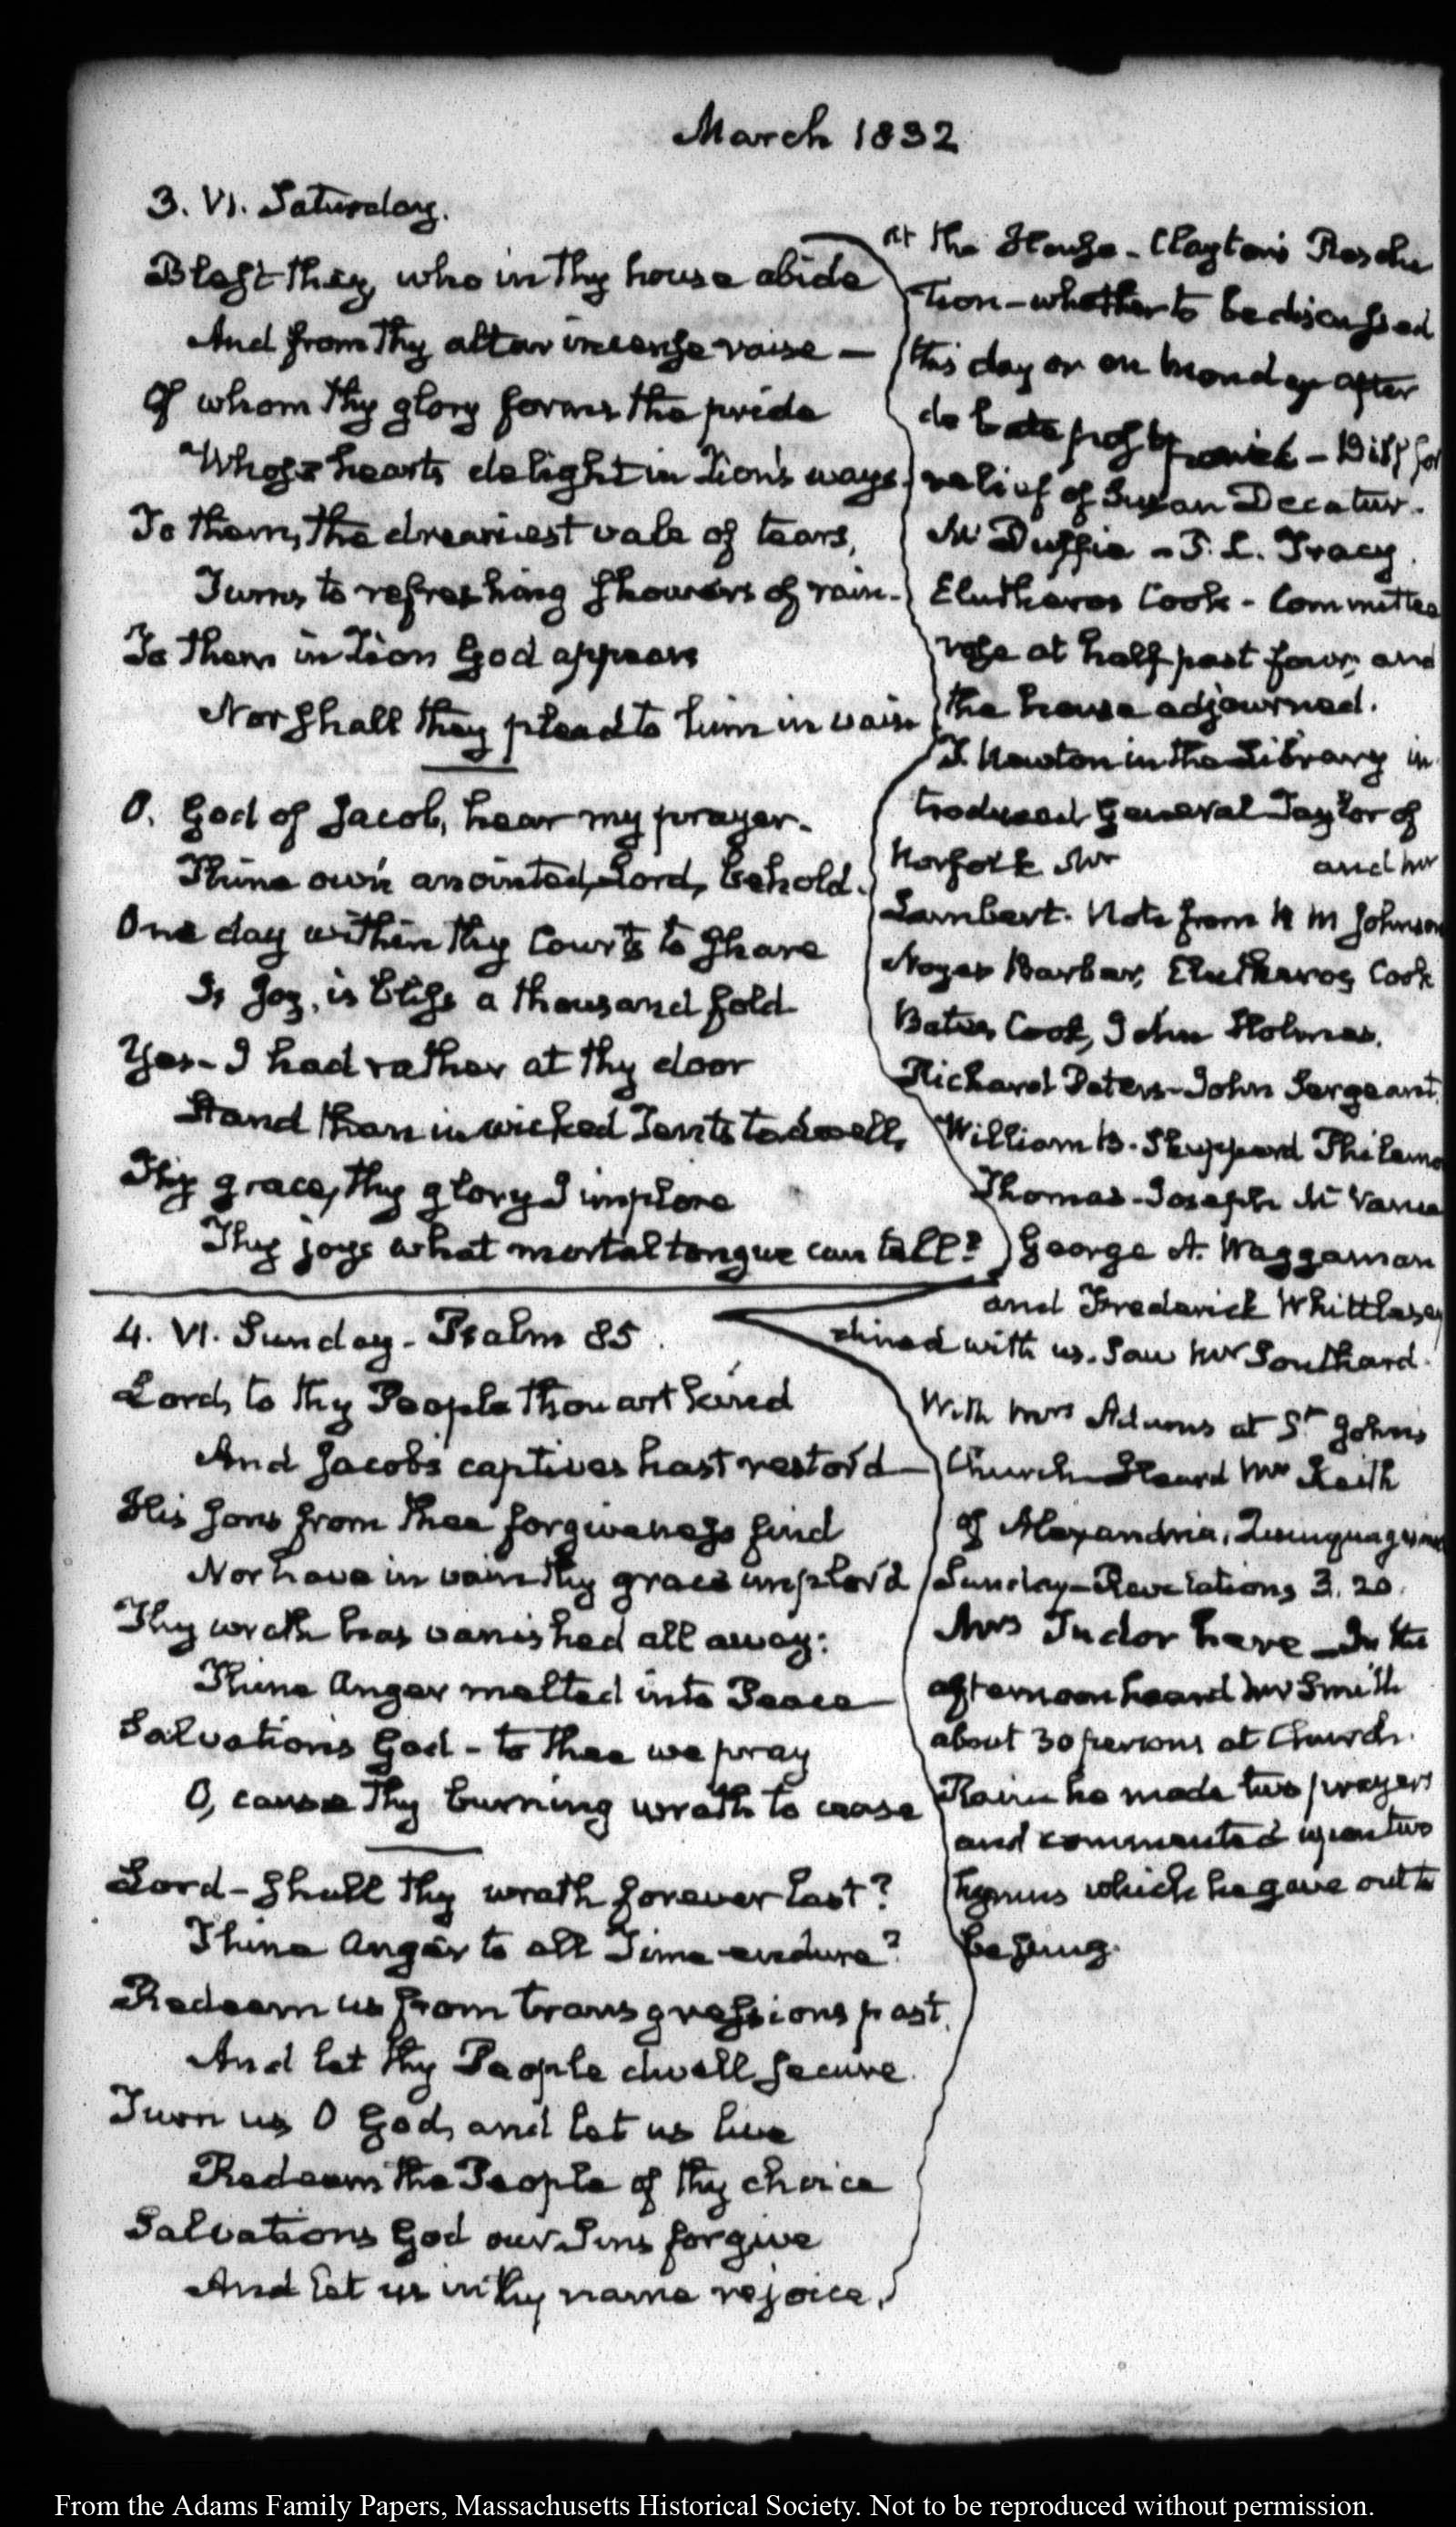 March 1832
3. VI. Saturday.
Blest they, who in thy house abide
And from thy altar incense raise —
Of whom thy glory forms the pride
Whose hearts delight in Zion's ways.
To them, the dreariest vale of tears,
Turns to refreshing showers of rain.
To them in Zion God appears
Nor shall they plead to him in vain
O, God of Jacob, hear my prayer.
Thine own anointed, Lord, behold.
One day within thy Courts to share
Is Joy, is bliss a thousand fold
Yes - I had rather at thy door
Stand than in wicked Tents to dwell,
Thy grace, thy glory I implore
Thy joys what mortal tongue can tell?
At the House - Clayton's Resolu
tion - whether to be discussed
this day or on Monday after
debate postponed - Bill for
relief of Susan Decatur.
McDuffie - P. L. Tracy.
Elutheros Cook - Committee
rose at half past four, and
the house adjourned.
T. Newton in the Library in
troduced General Taylor of
Norfolk Mr and Mr
Lambert. Note from R M Johnson
Noyes Barber, Elutheros Cook
Bates Cook, John Holmes.
Richard Peters - John Sergeant.
William B. Sheppard Philemo
Thomas - Joseph M Vance
George A. Waggaman
and Frederick Whittlesey
dined with us. Saw Mr Southard.
4. VI. Sunday - Psalm 85.
Lord, to thy People thou art kind
And Jacob's captives hast restor'd —
His sons from thee forgiveness find
Nor have in vain thy grace implor'd
Thy wrath has vanished all away:
Thine Anger melted into Peace —
Salvation's God - to thee we pray
O, cause thy burning wrath to cease
Lord - shall thy wrath forever last?
Thine Anger to all Time endure?
Redeem us from transgressions past.
And let thy People dwell secure.
Turn us O God, and let us live
Redeem the People of thy choice
Salvations God our Sins forgive
And let us in thy name rejoice.
With Mrs Adams at St John's
Church - Heard Mr Keith
of Alexandria. Quinquagesima
Sunday - Revelations 3. 20.
Mrs Tudor here - In the
afternoon heard Mr Smith
about 30 persons at Church.
Rain he made two prayers
and commented upon two
hymns which he gave out to
be sung.
From the Adams Family Papers, Massachusetts Historical Society. Not to be reproduced without permission.